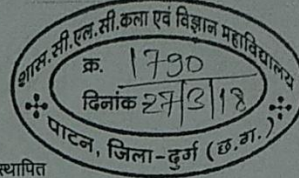 शास. सी.एल.सी.कला एवं विज्ञान महाविद्यालय
क्र. 1790
दिनांक 27/3/18
पाटन, जिला-दुर्ग (छ.ग.)
स्थापित